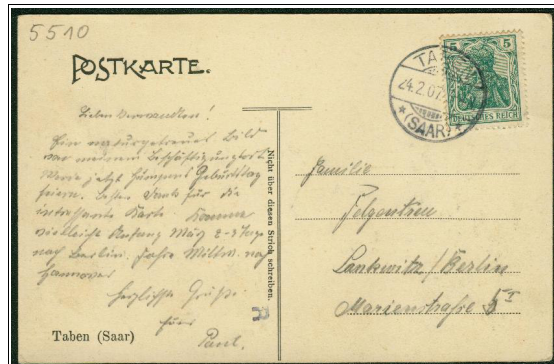 5510
POSTKARTE.
TA
24.2.07
(SAAR)
5
DEUTSCHES REICH
Lieben Verwandten!
Ein naturgetreues Bild
von meinem Beschäftigungsort
Werde jetzt Geburtstag
feiern. Besten Dank für die
interessante Karte. Komme
vielleicht Anfang März 2-3 Tage
nach Berlin. Fahre Mittw. nach
Hannover
Herzlichste Grüße
Euer
Paul.
Taben (Saar)
Nicht über diesen Strich schreiben.
Familie
Felgentreu
Lankwitz/Berlin
Marienstraße 5 I